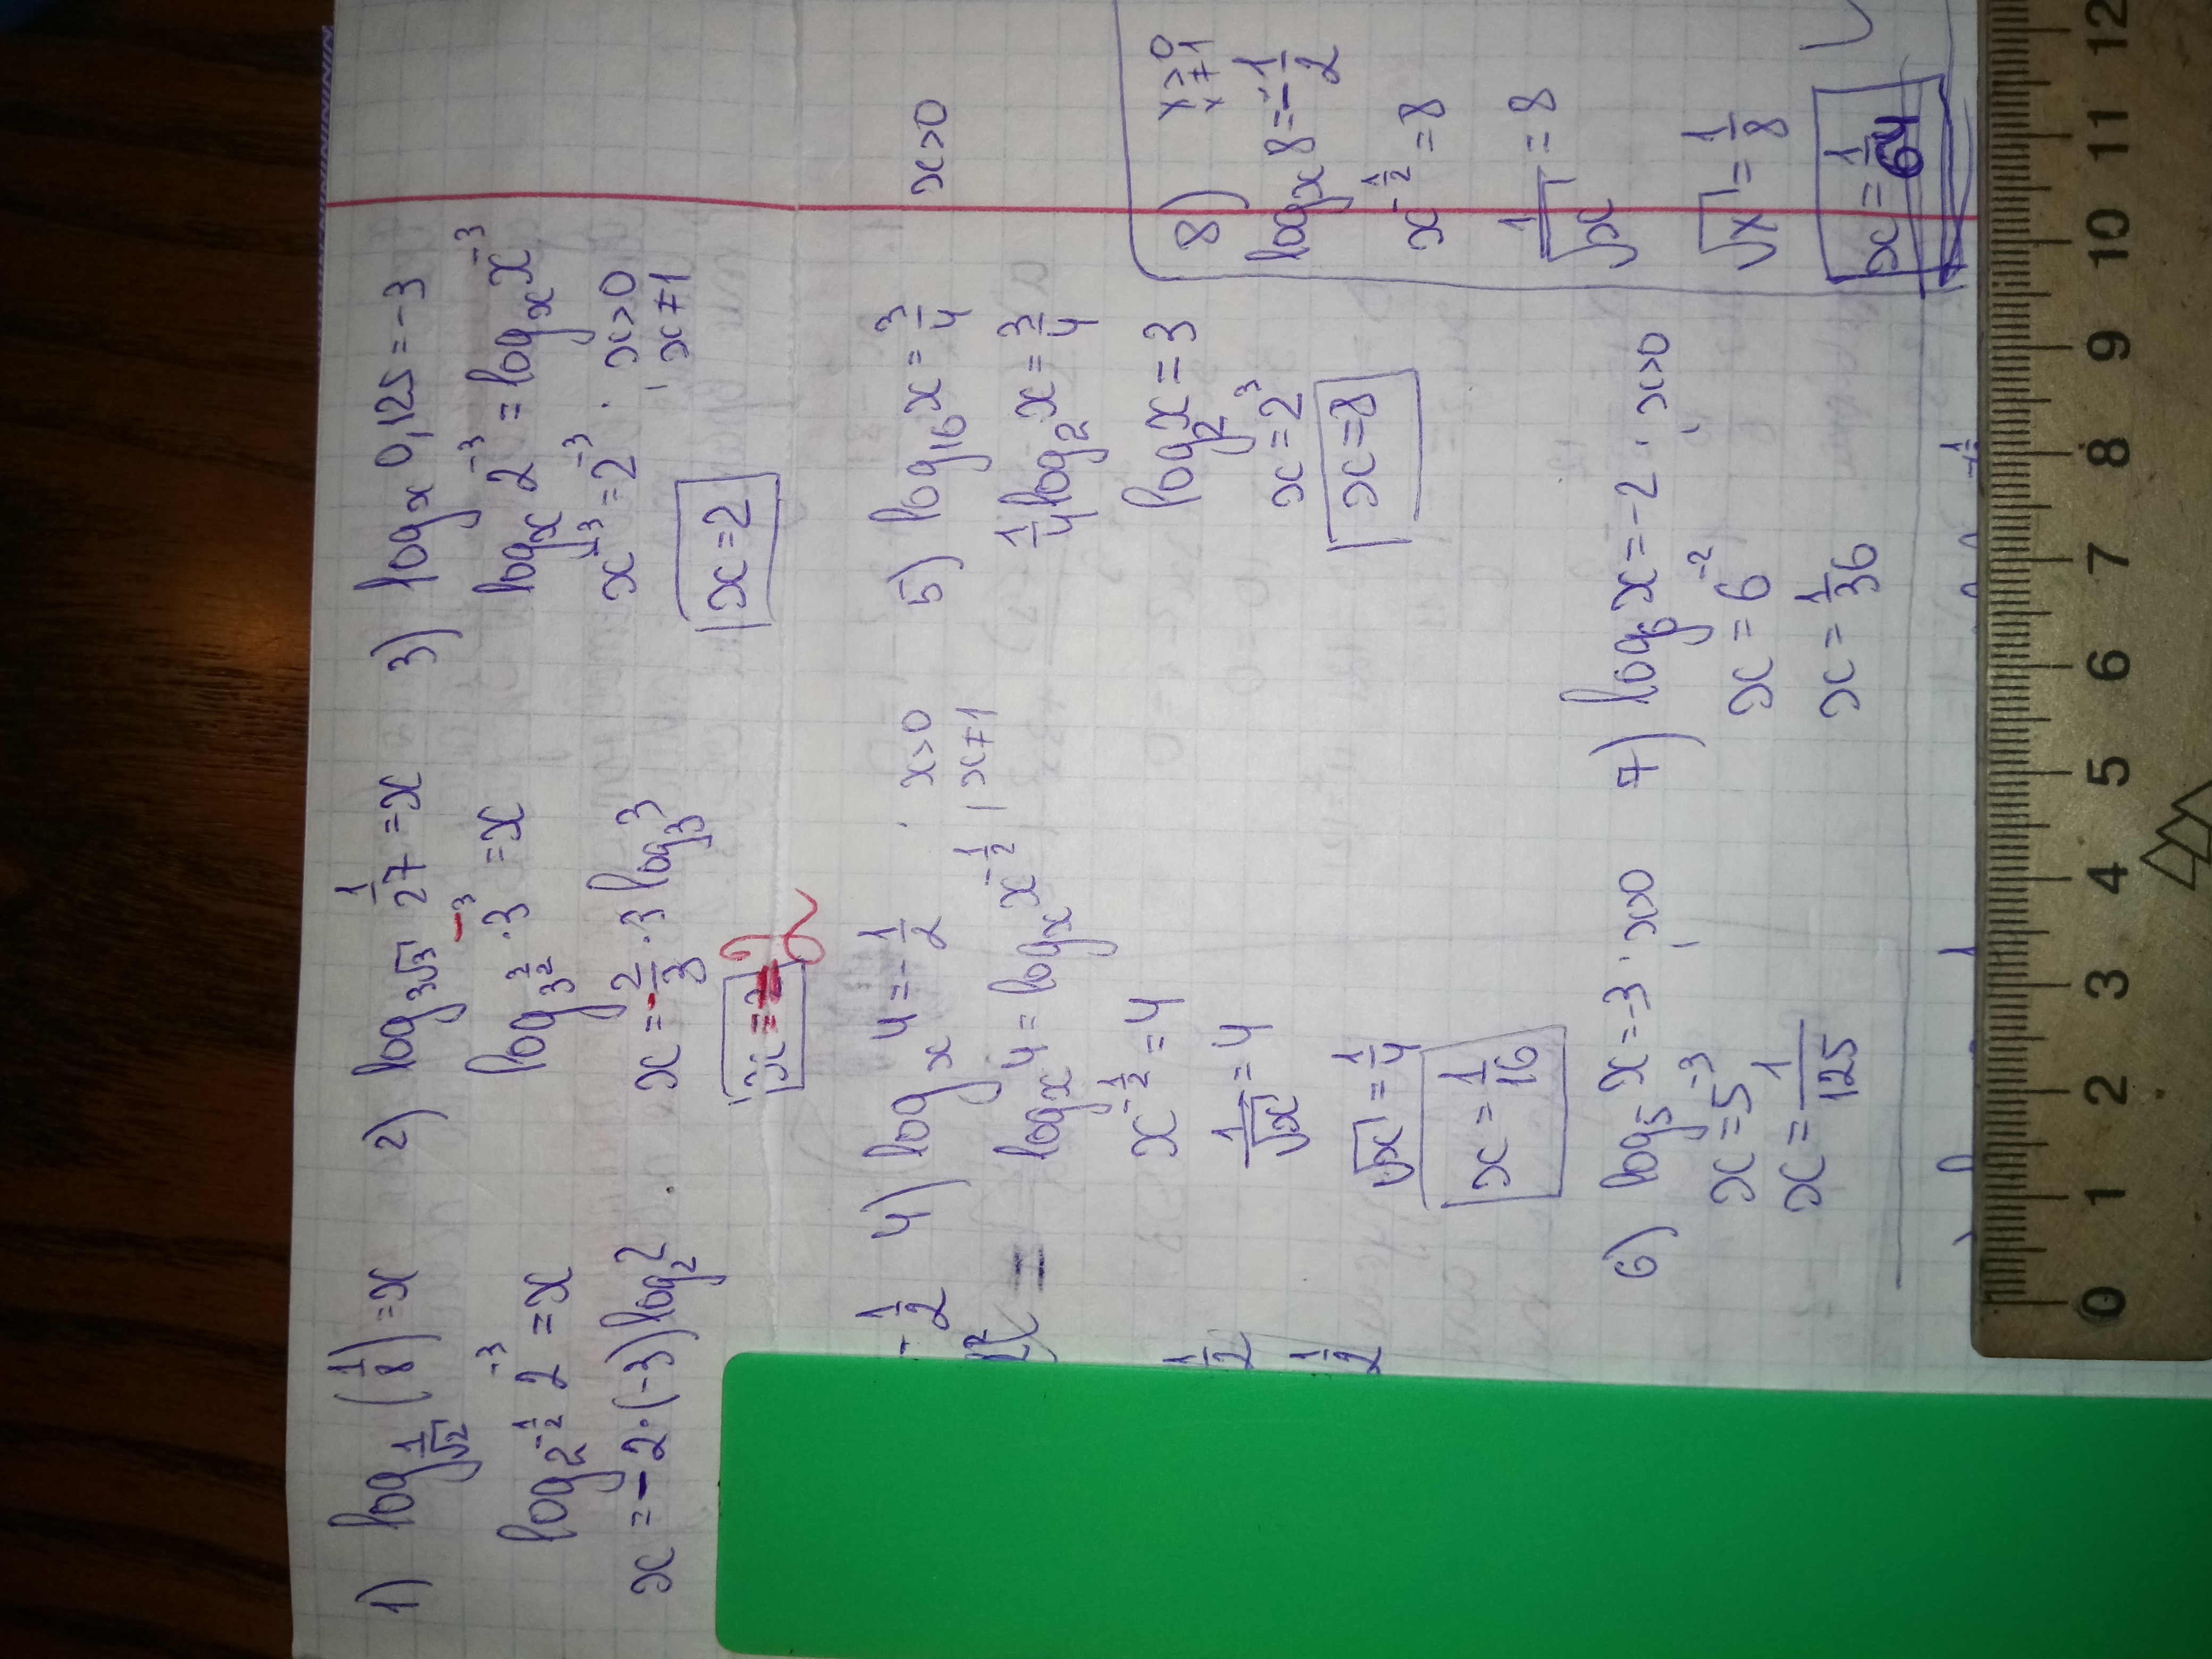 1) log_{1/√2} (1/8) = x
log_{2^{-1/2}} 2^{-3} = x
x = -2·(-3) log_2 2
2) log_{3√3} 1/27 = x
log_{3^{3/2}} 3^{-3} = x
x = -2/3 · 3 log_3 3
3) log_x 0,125 = -3
log_x 2^{-3} = log_x x^{-3}
x^{-3} = 2^{-3} ; x>0
x≠1
x = 2
-1/2
4) log_x 4 = -1/2 ; x>0
x≠1
log_x 4 = log_x x^{-1/2}
x^{-1/2} = 4
1/√x = 4
√x = 1/4
x = 1/16
5) log_{16} x = 3/4 x>0
1/4 log_2 x = 3/4
log_2 x = 3
x = 2^3
x = 8
6) log_5 x = -3 ; x>0
x = 5^{-3}
x = 1/125
7) log_6 x = -2 ; x>0
x = 6^{-2}
x = 1/36
8) x>0
x≠1
log_x 8 = -1/2
x^{-1/2} = 8
1/√x = 8
√x = 1/8
x = 1/64
0 1 2 3 4 5 6 7 8 9 10 11 12